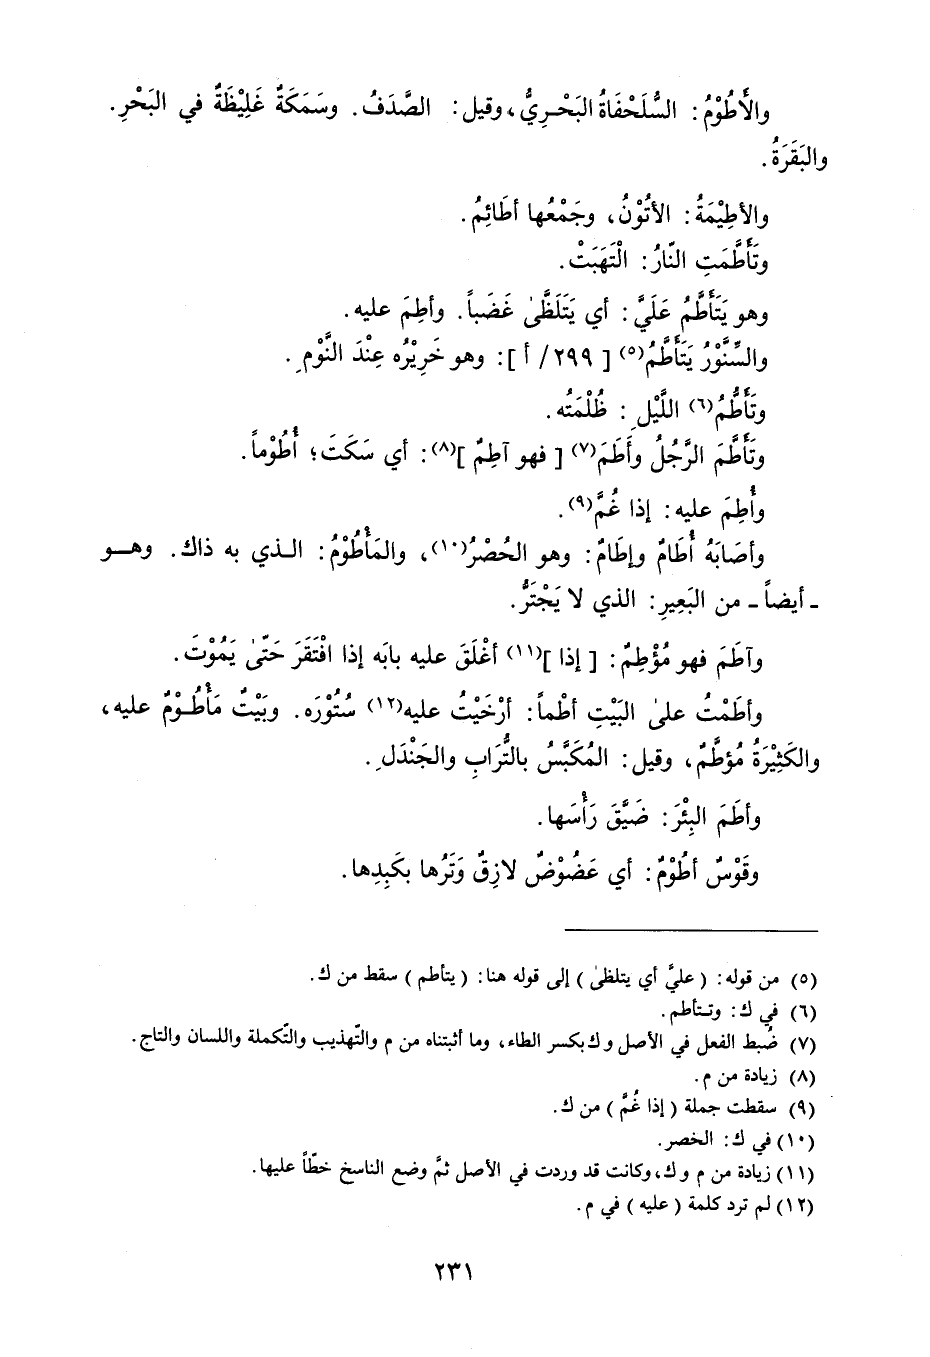 والأَطُوْمُ: السُّلَحْفَاةُ البَحْرِيُّ، وقيل: الصَّدَفُ. وسَمَكَةٌ غَلِيْظَةٌ في البَحْرِ.
والبَقَرَةُ.
والأطِيْمَةُ: الأتُوْنُ، وجَمْعُها أطَائِمُ.
وتَأَطَّمَتِ النّارُ: الْتَهَبَتْ.
وهو يَتَأَطَّمُ عَلَيَّ: أي يَتَلَظَّىٰ غَضَباً. وأَطِمَ عليه.
والسِّنَّوْرُ يَتَأَطَّمُ(٥) [ ٢٩٩/ أ ]: وهو خَرِيْرُه عِنْدَ النَّوْمِ.
وتَأَطُّمُ(٦) اللَّيْلِ: ظُلْمَتُه.
وتَأَطَّمَ الرَّجُلُ وأَطَمَ(٧) [ فهو آطِمٌ ](٨): أي سَكَتَ؛ أُطُوْماً.
وأُطِمَ عليه: إذا غُمَّ(٩).
وأصَابَهُ أُطَامٌ وإطَامٌ: وهو الحُصْرُ(١٠)، والمَأْطُوْمُ: الـذي به ذاك. وهـــو
ـ أيضاً ـ من البَعِيرِ: الذي لا يَجْتَرُّ.
وآطَمَ فهو مُؤْطِمٌ: [ إذا ](١١) أغْلَقَ عليه بابَه إذا افْتَقَرَ حَتّىٰ يَمُوْتَ.
وأطَمْتُ علىٰ البَيْتِ أطْماً: أرْخَيْتُ عليه(١٢) سُتُوْرَه. وبَيْتٌ مَأْطُـوْمٌ عليه،
والكَثِيْرَةُ مُؤطَّمٌ، وقيل: المُكَبَّسُ بالتُّرَابِ والجَنْدَلِ.
وأطَمَ البِئْرَ: ضَيَّقَ رَأْسَها.
وقَوْسٌ أطُوْمٌ: أي عَضُوْضٌ لازِقٌ وَتَرُها بكَبِدِها.
(٥) من قوله: ( عليَّ أي يتلظىٰ ) إلى قوله هنا: ( يتأطم ) سقط من ك.
(٦) في ك: وتـتأطم.
(٧) ضُبط الفعل في الأصل و ك بكسر الطاء، وما أثبتناه من م والتّهذيب والتّكملة واللسان والتاج.
(٨) زيادة من م.
(٩) سقطت جملة ( إذا غُمَّ ) من ك.
(١٠) في ك: الخصر.
(١١) زيادة من م و ك، وكانت قد وردت في الأصل ثمَّ وضع الناسخ خطّاً عليها.
(١٢) لم ترد كلمة ( عليه ) في م.
٢٣١